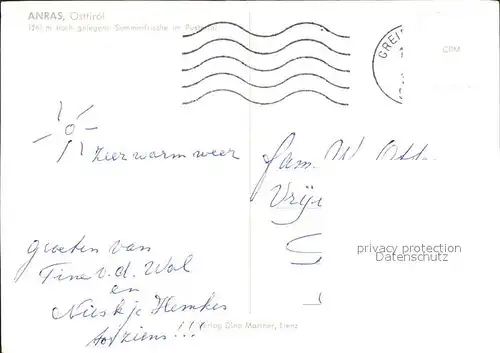 ANRAS, Osttirol
1261 m hoch gelegene Sommerfrische im Pustertal
GREI
CPM
Zeer warm weer
Fam. W. Ott
Vrij
groeten van
Tine v.d. Wal
en
Nieskje Hemkes
tot ziens!!!
privacy protection
Datenschutz
Verlag Dina Mariner, Lienz